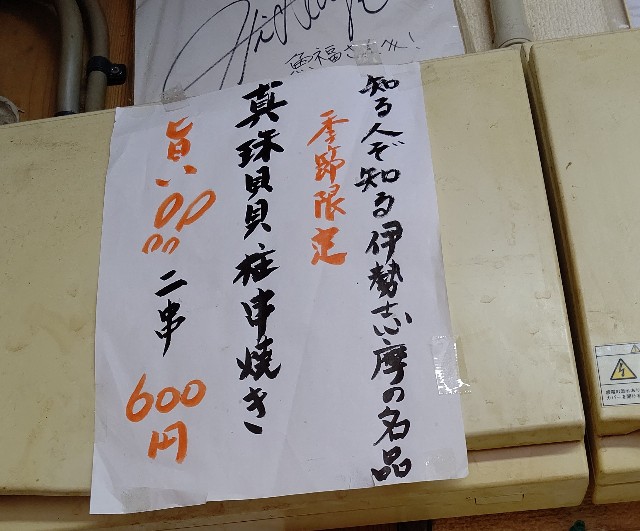 魚福さん江!
知る人ぞ知る伊勢志摩の名品
季節限定
真珠貝貝柱串焼き
旨い品 二串 600円